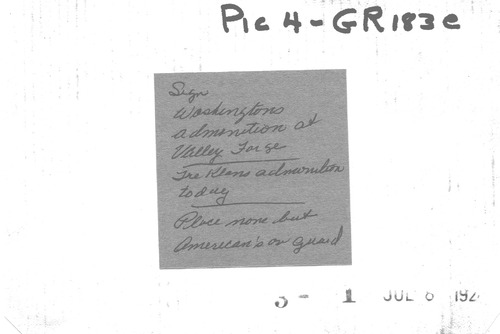 Pic 4-GR183c
Sign
Washingtons
admonition at
Valley Forge
The Klans admonition
today
Place none but
American's on guard
3- 1 JUL 6 192